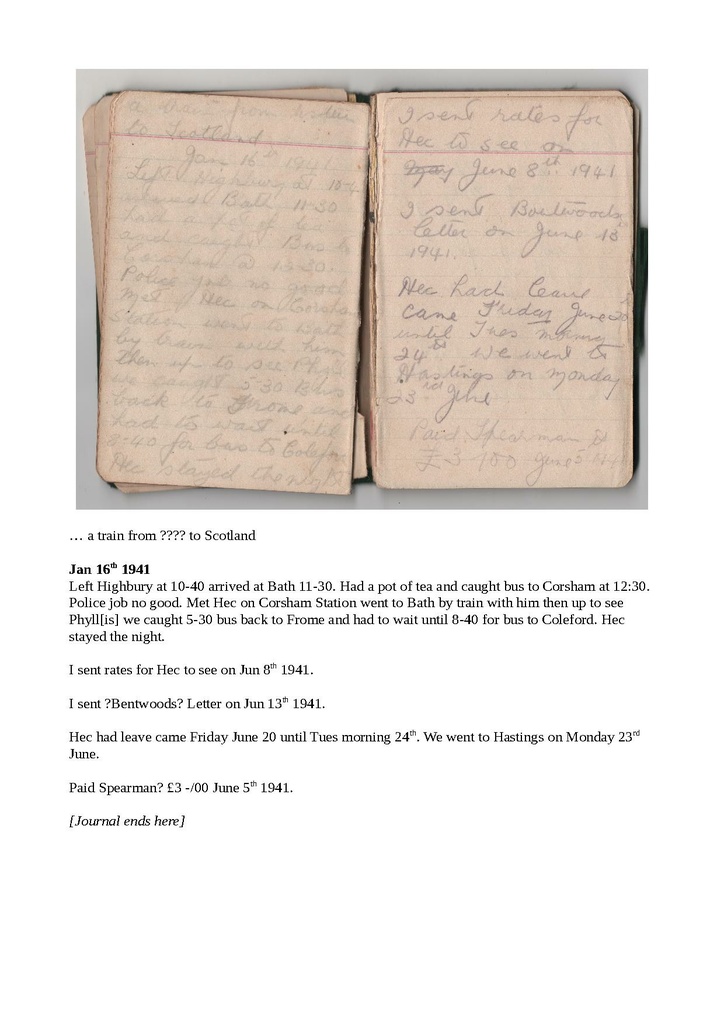 a train from
to Scotland
Jan 16th 1941
Left Highbury at 10-4
Bath 11-30
had a pot of tea
and caught Bus to
Corsham @ 12-30.
Police job no good
Met Hec on Corsham
Station went to Bath
by train with him
then up to see Phyl
we caught 5-30 Bus
back to Frome and
had to wait until
8-40 for bus to Colefor
Hec stayed the night
I sent rates for
Hec to see on
May June 8th. 1941
I sent
letter on June 13
1941.
Hec had leave
came Friday June 20
until Tues morning
24th We went to
Hastings on Monday
23rd June
Paid Spearman
£3 June 5th
… a train from ???? to Scotland
Jan 16th 1941
Left Highbury at 10-40 arrived at Bath 11-30. Had a pot of tea and caught bus to Corsham at 12:30.
Police job no good. Met Hec on Corsham Station went to Bath by train with him then up to see
Phyll[is] we caught 5-30 bus back to Frome and had to wait until 8-40 for bus to Coleford. Hec
stayed the night.
I sent rates for Hec to see on Jun 8th 1941.
I sent ?Bentwoods? Letter on Jun 13th 1941.
Hec had leave came Friday June 20 until Tues morning 24th. We went to Hastings on Monday 23rd
June.
Paid Spearman? £3 -/00 June 5th 1941.
[Journal ends here]